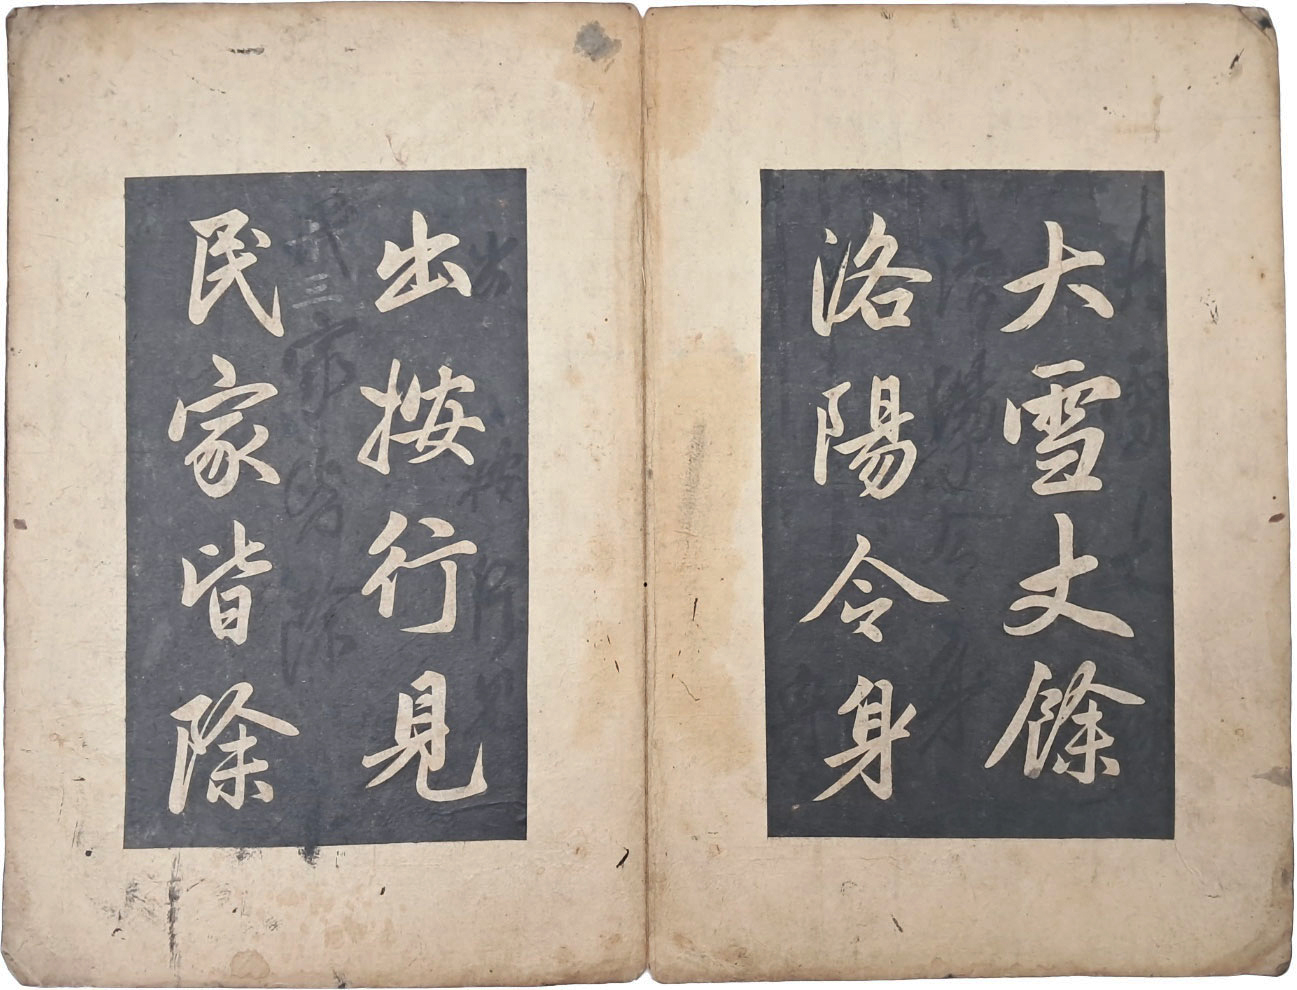 大雪丈餘
洛陽令身
出按行見
民家皆除
三